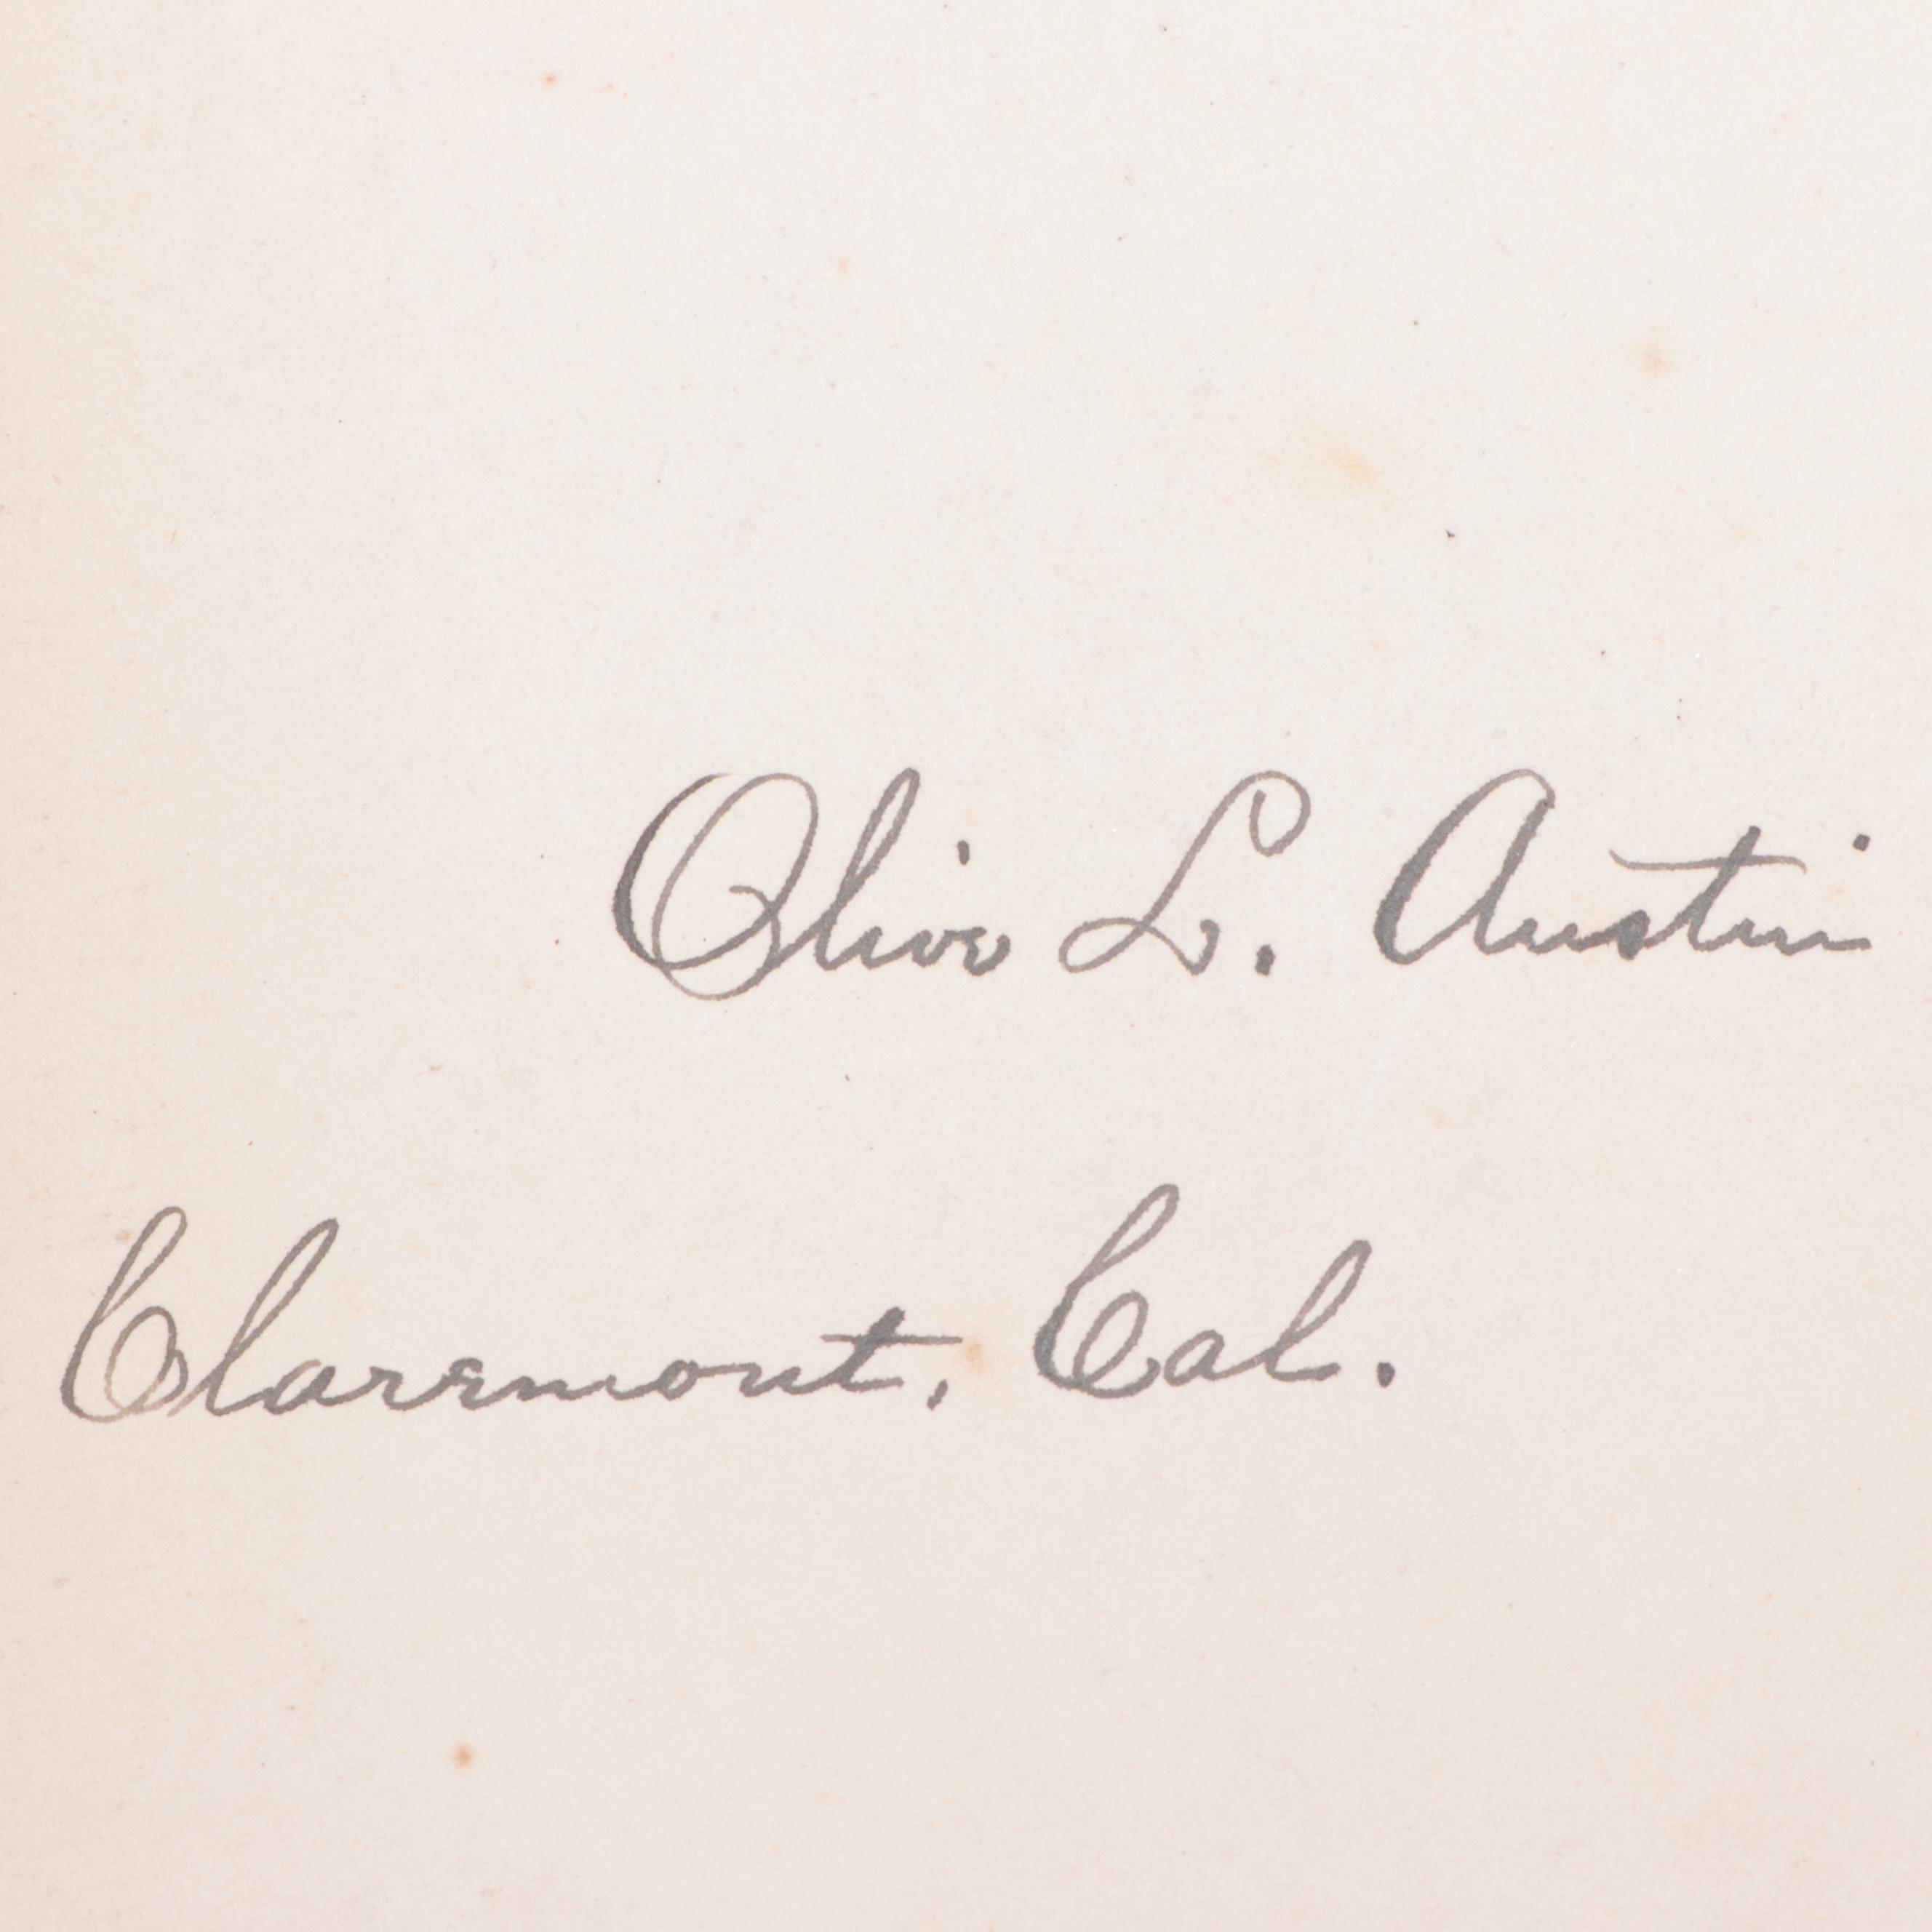 Olive L. Austin
Claremont, Cal.